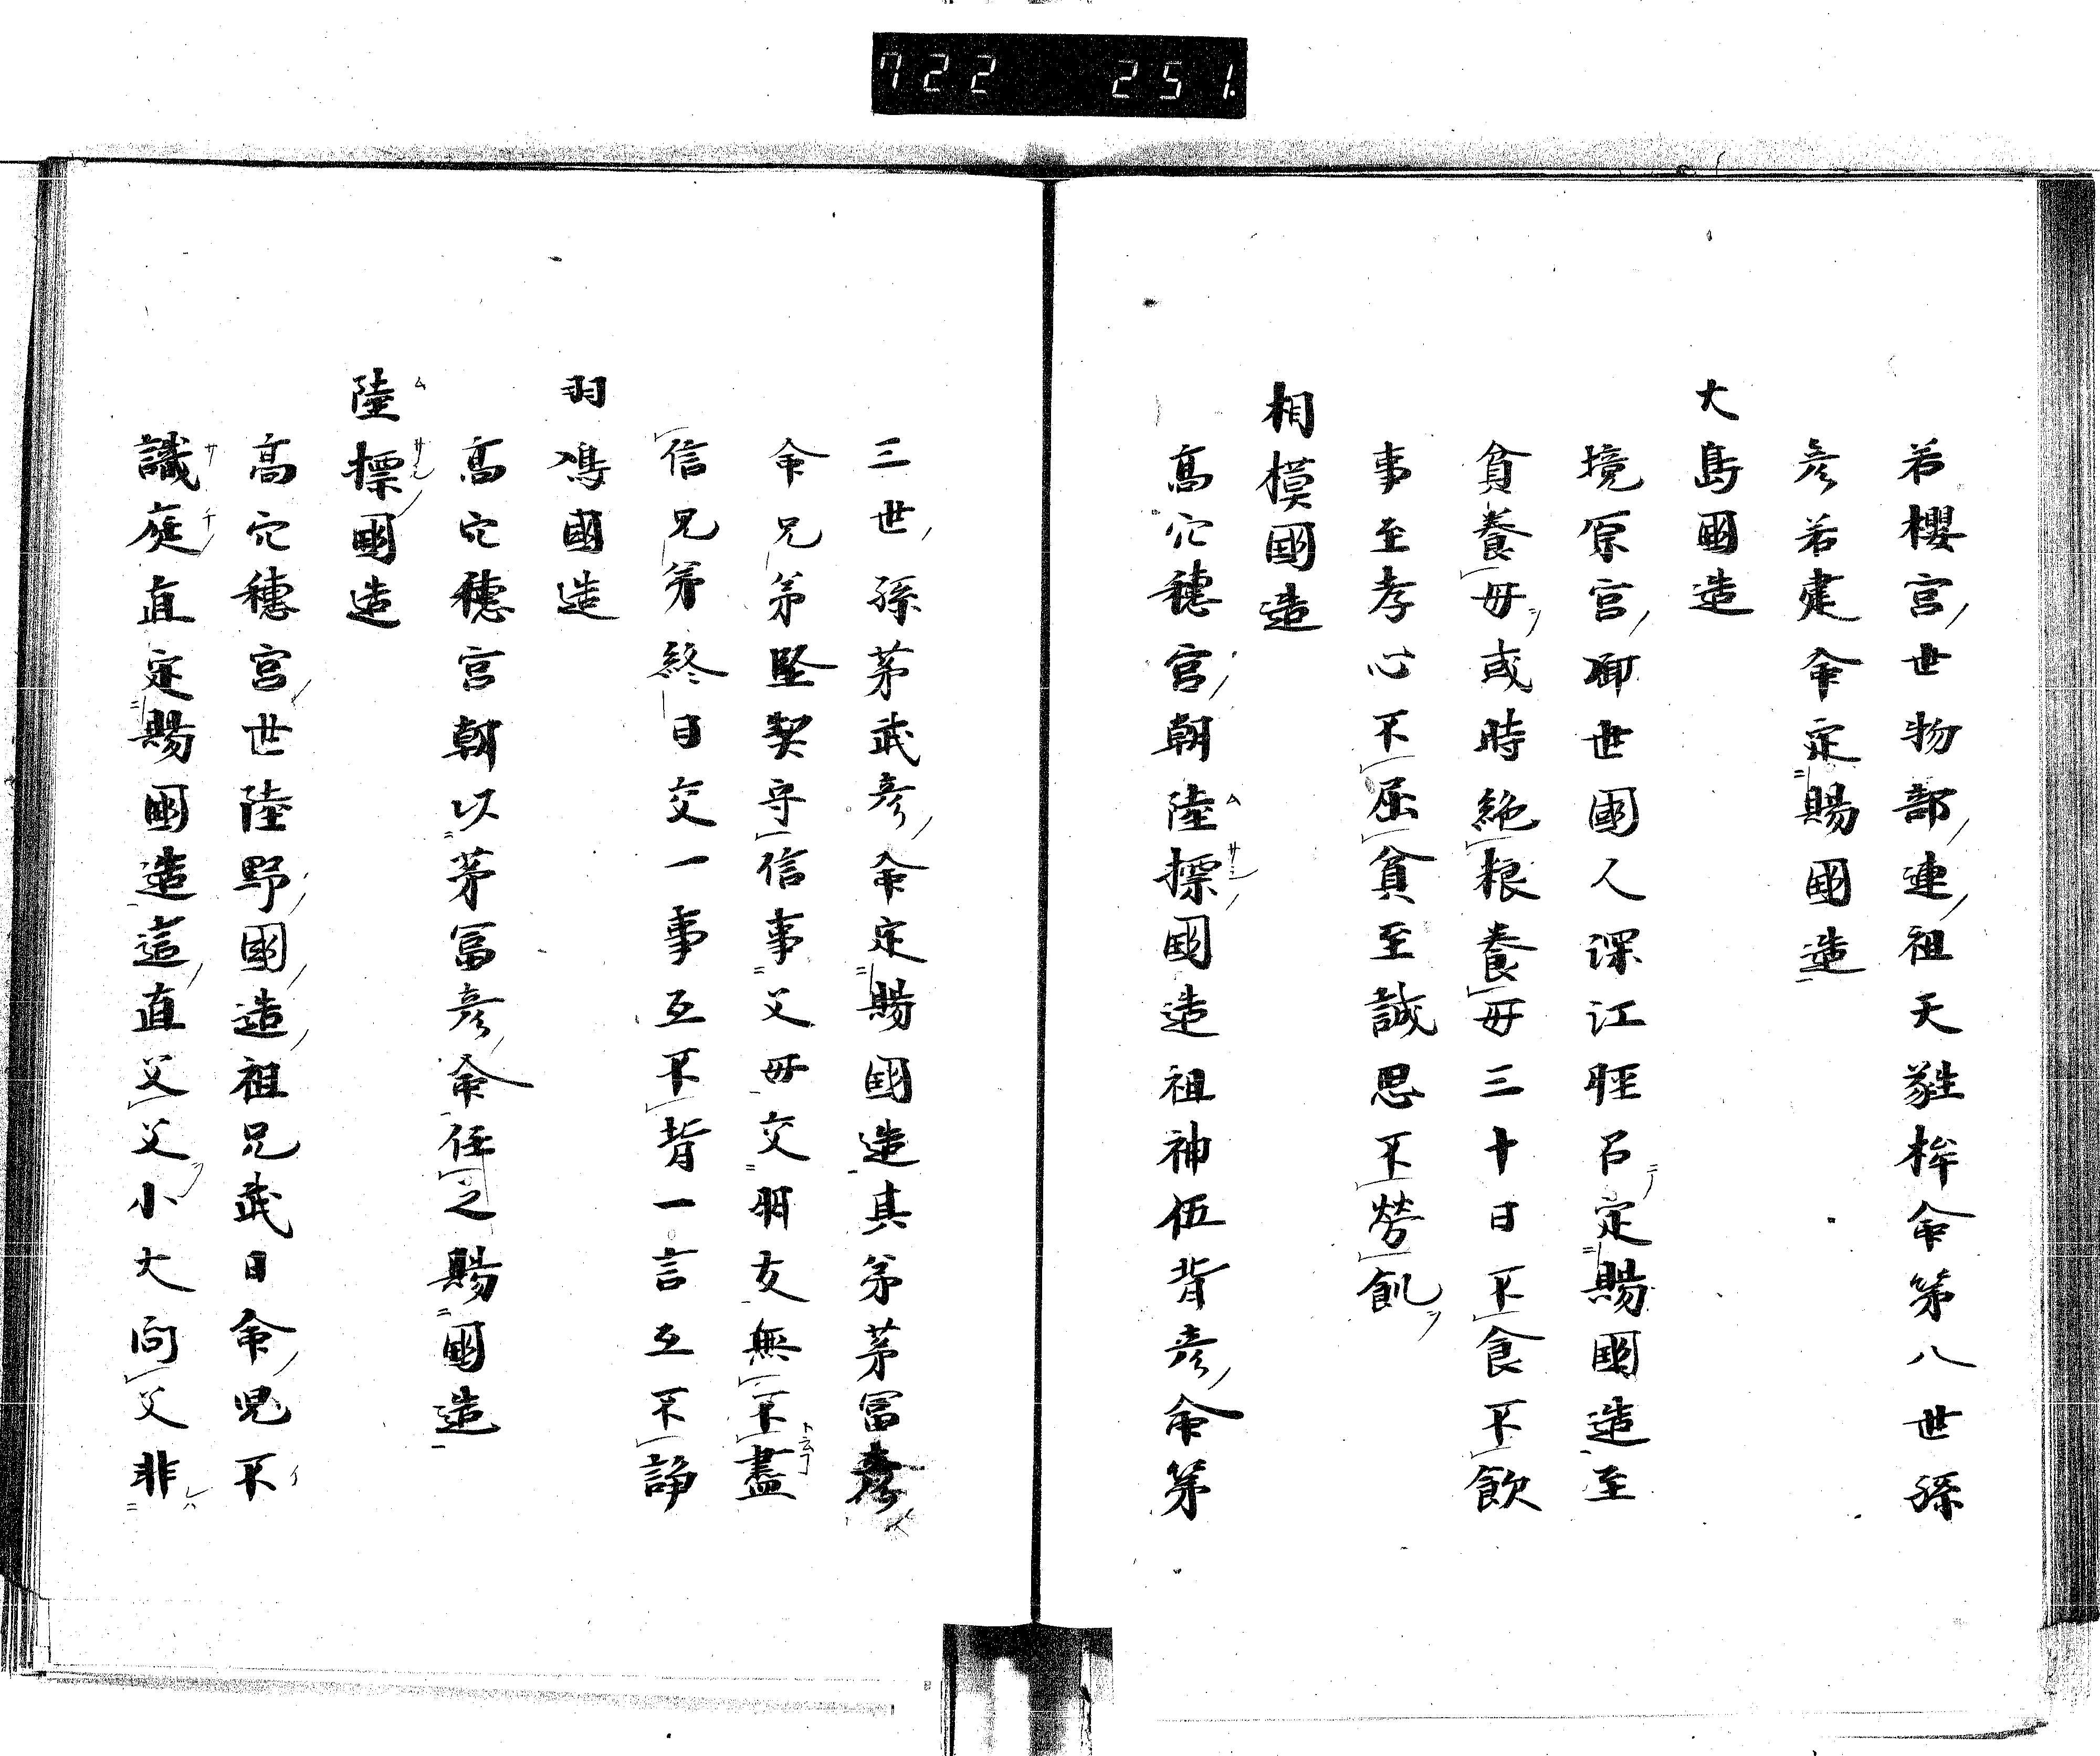 722 251.
若櫻宮世物部連祖天 桙命第八世孫
彦若建命定賜國造
大島國造
境原宮御世國人深江 召定賜國造至
貧養母或時絶粮養母三十日不食不飲
事至孝心不屈貧至誠思不労飢
相模國造
髙穴穂宮朝陸摽國造祖神伍背彦命第
三世孫茅武彦命定賜國造其弟茅冨彦
命兄弟堅契守信事父母交朋友無不盡
信兄弟終日交一事互不背一言互不諍
羽鳴國造
髙穴穂宮朝以茅冨彦命任之賜國造
陸摽國造
髙穴穂宮世陸野國造祖兄武日命児不
識庭直定賜國造這直父父小大向父非